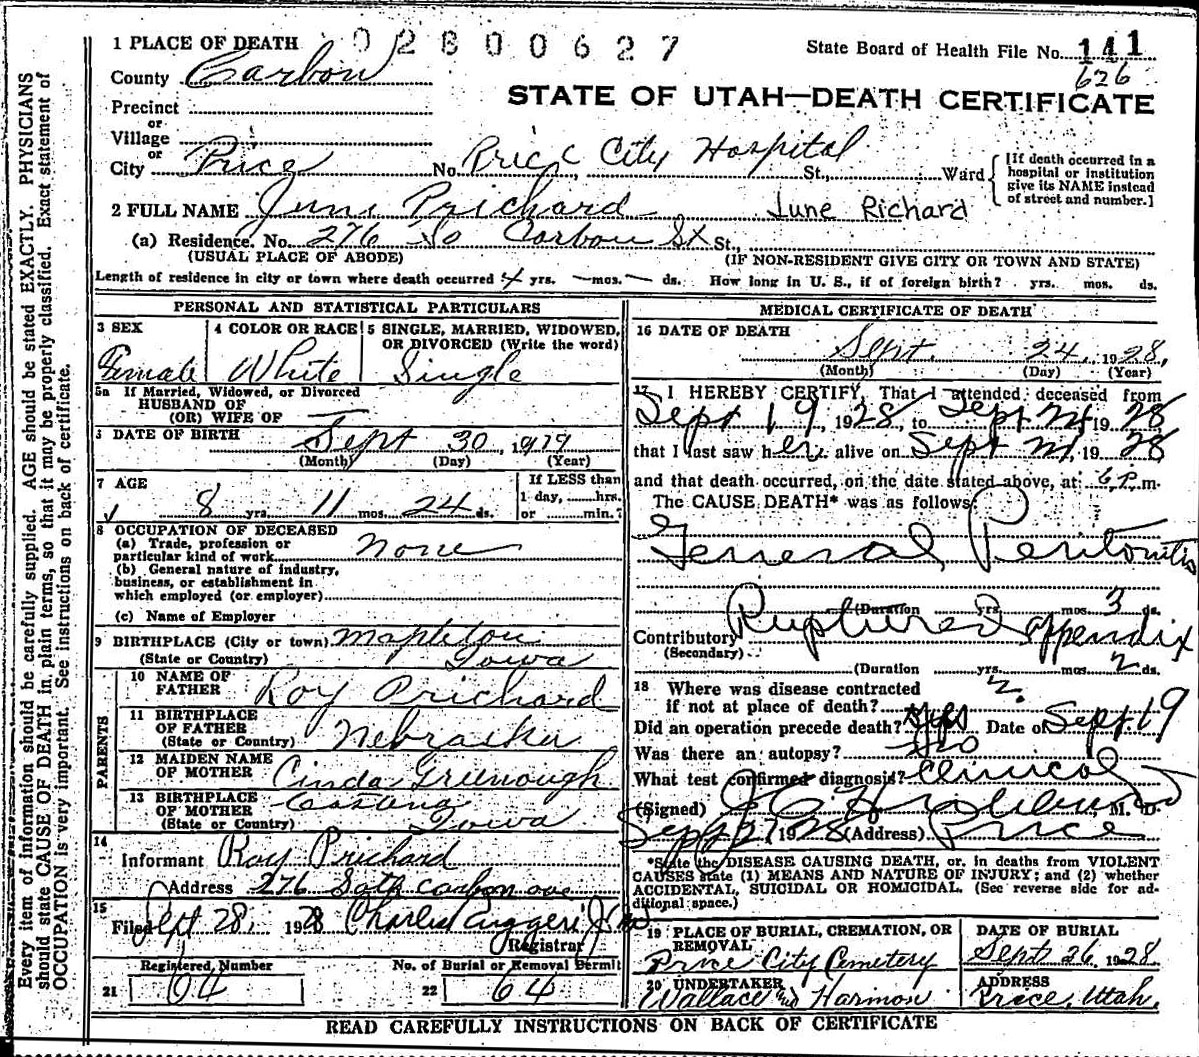 Every item of information should be carefully supplied. AGE should be stated EXACTLY. PHYSICIANS
should state CAUSE OF DEATH in plain terms, so that it may be properly classified. Exact statement of
OCCUPATION is very important. See instructions on back of certificate.
1 PLACE OF DEATH 02800627 State Board of Health File No. 141
County Carbon 626
STATE OF UTAH—DEATH CERTIFICATE
Precinct
or
Village
or
City Price No. Price City Hospital St., Ward
[If death occurred in a
hospital or institution
give its NAME instead
of street and number.]
2 FULL NAME June Prichard June Richard
(a) Residence. No. 276 So Carbon St St.,
(USUAL PLACE OF ABODE) (IF NON-RESIDENT GIVE CITY OR TOWN AND STATE)
Length of residence in city or town where death occurred 4 yrs. — mos. — ds. How long in U. S., if of foreign birth? yrs. mos. ds.
PERSONAL AND STATISTICAL PARTICULARS
3 SEX 4 COLOR OR RACE 5 SINGLE, MARRIED, WIDOWED,
OR DIVORCED (Write the word)
Female White Single
5a If Married, Widowed, or Divorced
HUSBAND OF
(OR) WIFE OF —
DATE OF BIRTH Sept 30, 1919
(Month) (Day) (Year)
7 AGE 8 yrs. 11 mos. 24 ds.
If LESS than
1 day, hrs.
or min.?
8 OCCUPATION OF DECEASED
(a) Trade, profession or
particular kind of work none
(b) General nature of industry,
business, or establishment in
which employed (or employer)
(c) Name of Employer
9 BIRTHPLACE (City or town) Mapleton
(State or Country) Iowa
PARENTS
10 NAME OF
FATHER Roy Prichard
11 BIRTHPLACE
OF FATHER
(State or Country) Nebraska
12 MAIDEN NAME
OF MOTHER Cinda Greenough
13 BIRTHPLACE
OF MOTHER Castana
(State or Country) Iowa
14
Informant Roy Prichard
Address 276 Soth Carbon ave
15
Filed Sept 28, 1928 Charles Ruggeri
Registrar
Registered Number No. of Burial or Removal Permit
21 64 22 64
MEDICAL CERTIFICATE OF DEATH
16 DATE OF DEATH
Sept. 24, 1928,
(Month) (Day) (Year)
17 I HEREBY CERTIFY, That I attended deceased from
Sept 19, 1928, to Sept 24 1928
that I last saw her alive on Sept 24, 1928
and that death occurred, on the date stated above, at 6 P. m.
The CAUSE DEATH* was as follows:
General Peritonitis
(Duration yrs. mos. 3 ds.
Contributory Ruptured appendix
(Secondary)
(Duration yrs. mos. 2 ds.
18 Where was disease contracted
if not at place of death? ?
Did an operation precede death? yes Date of Sept. 19
Was there an autopsy? No
What test confirmed diagnosis? Clinical
(Signed) M. D.
1928 (Address) Price
*State the DISEASE CAUSING DEATH, or, in deaths from VIOLENT
CAUSES state (1) MEANS AND NATURE OF INJURY; and (2) whether
ACCIDENTAL, SUICIDAL OR HOMICIDAL. (See reverse side for ad-
ditional space.)
19 PLACE OF BURIAL, CREMATION, OR
REMOVAL
Price City Cemetery
DATE OF BURIAL
Sept 26, 1928.
20 UNDERTAKER
Wallace and Harmon
ADDRESS
Price, Utah.
READ CAREFULLY INSTRUCTIONS ON BACK OF CERTIFICATE